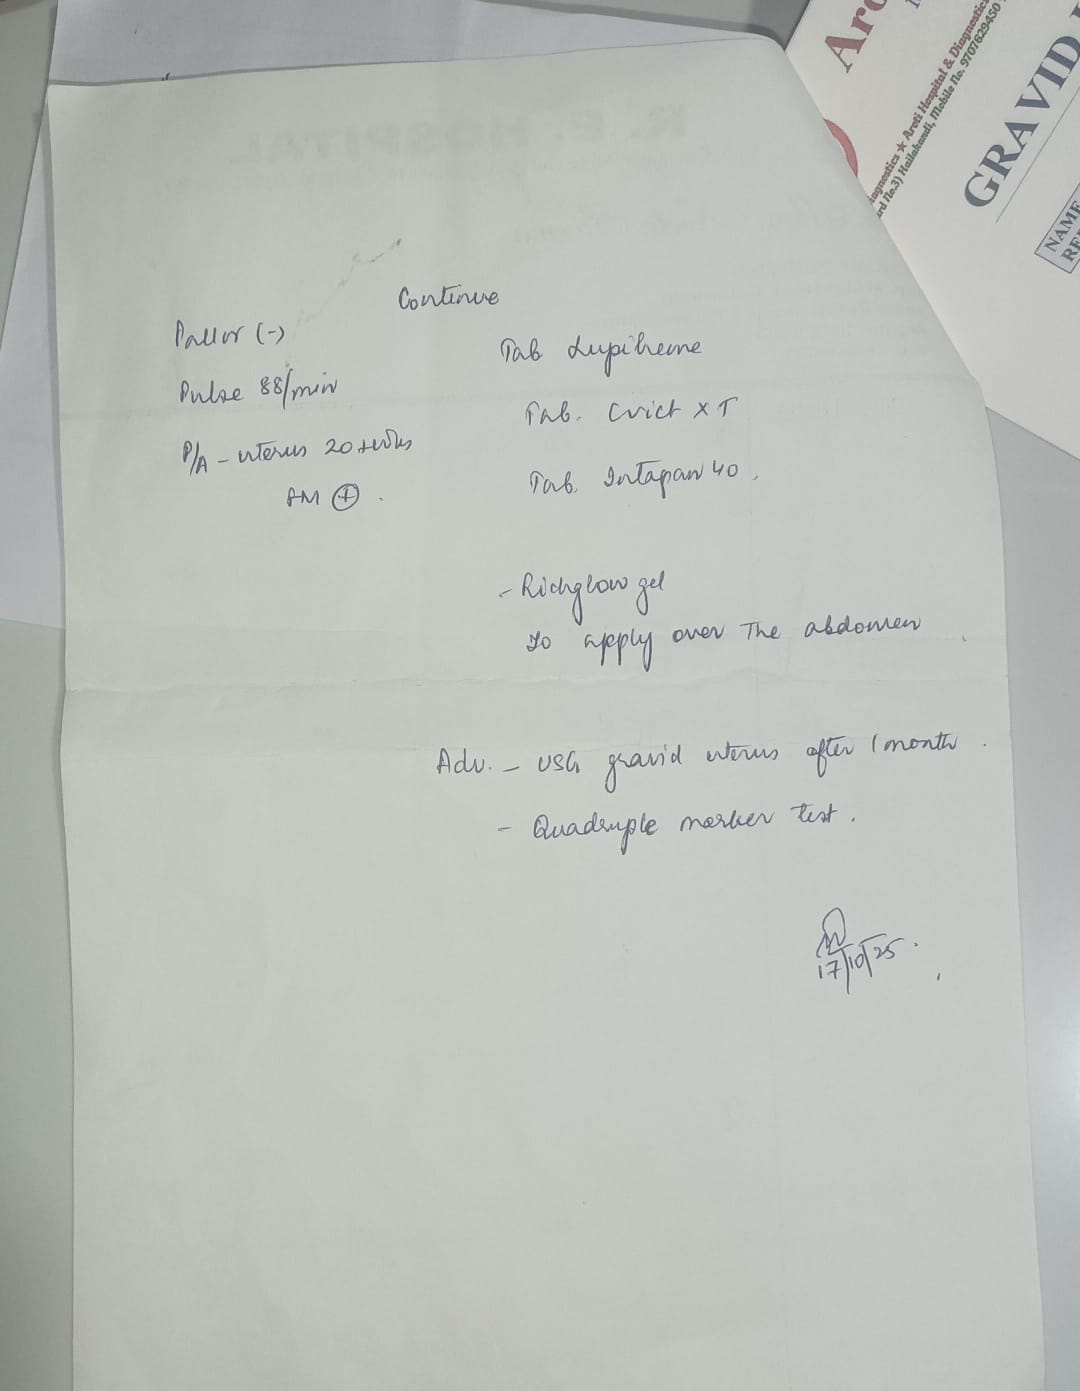 R. E. HOSPITAL
Continue
Pallor (-)
Pulse 88/min
P/A - uterus 20 wks
FM (+).
Tab Lupiheme
Tab. Cvict x T
Tab. Intapan 40.
- Richglow gel
To apply over The abdomen
Adv. - USG gravid uterus after 1 month.
- Quadruple marker test.
17/10/25.
agnostics ★ Aroti Hospital & Diagnostics
rd No.3) Hailakandi, Mobile No. 9707629450
GRAVID
NAME